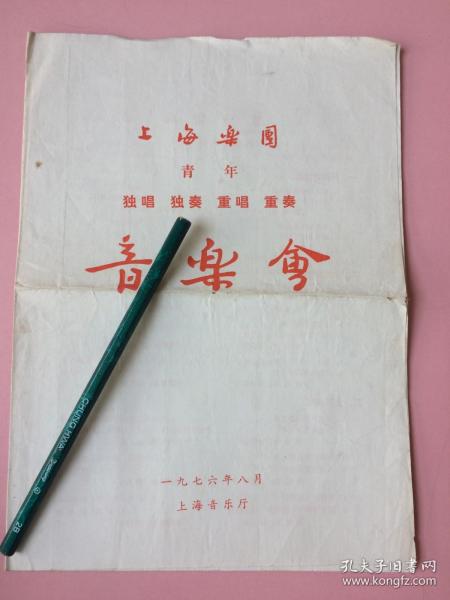 上海楽團
青年
独唱 独奏 重唱 重奏
音楽會
CHUNG HWA
2B
一九七六年八月
上海音乐厅
孔夫子旧书网
www.kongfz.com